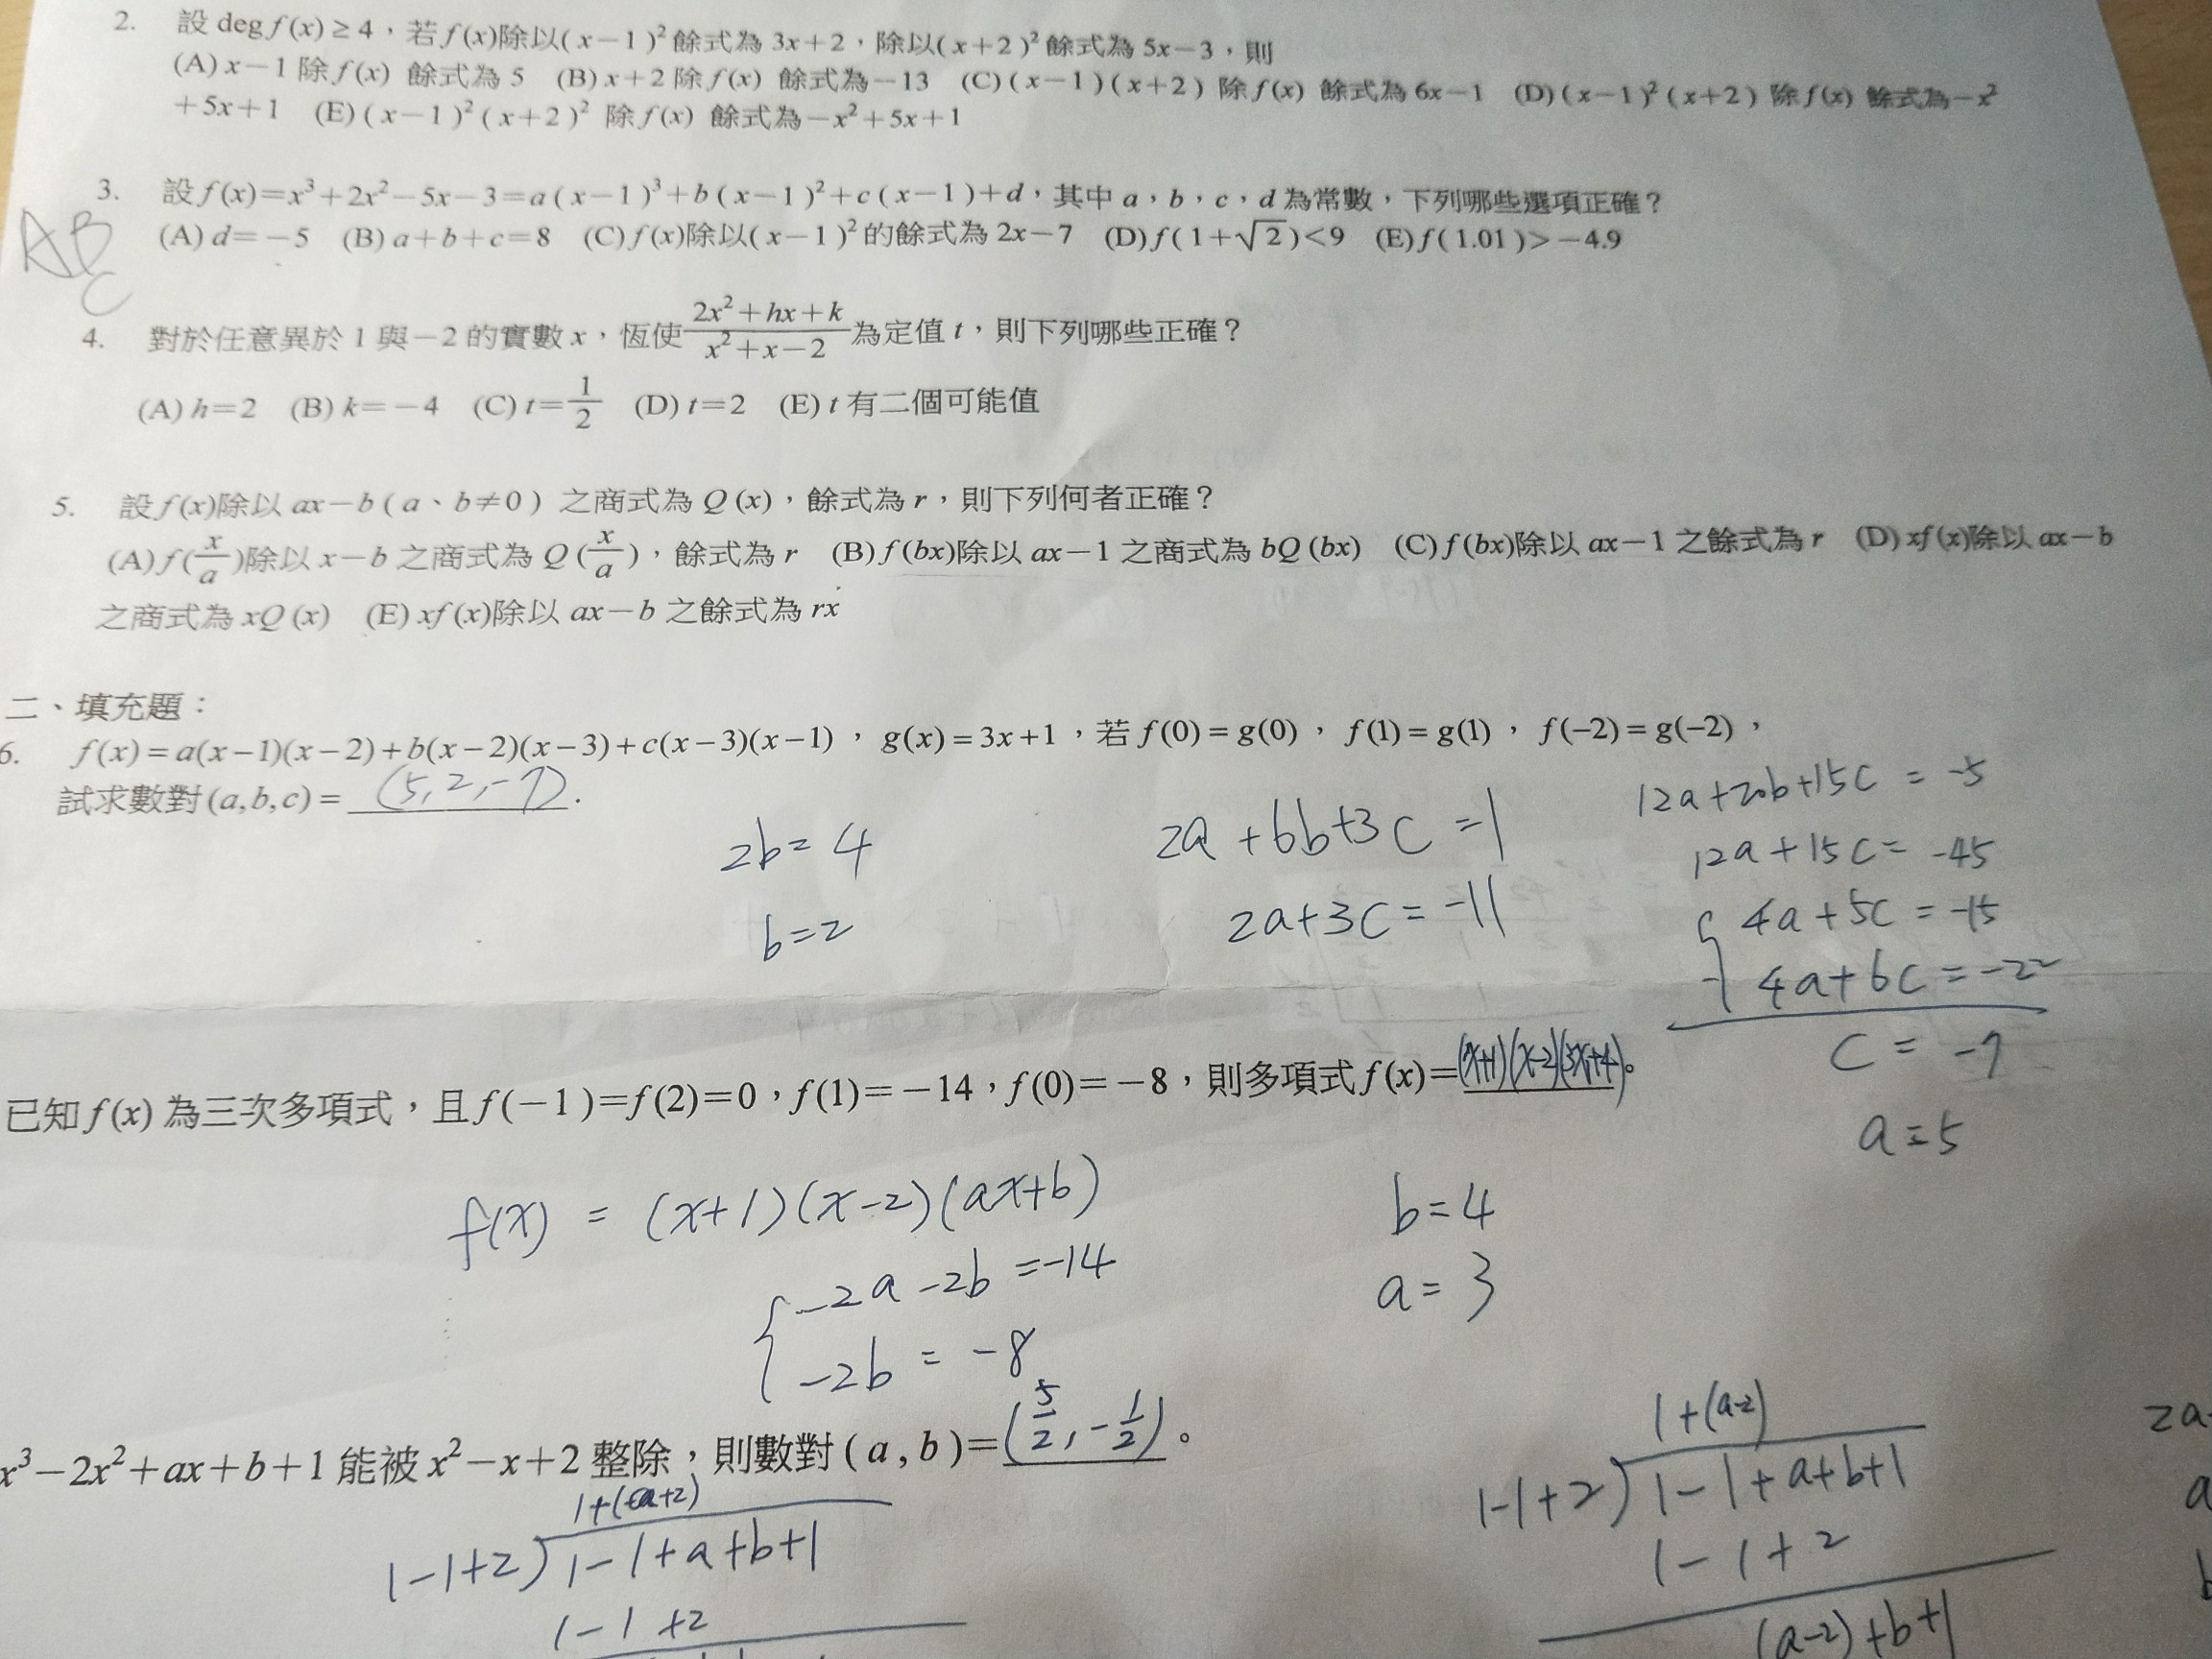 2. 設 deg f(x) ≥ 4,若 f(x)除以(x－1)²餘式為 3x＋2,除以(x＋2)²餘式為 5x－3,則
(A) x－1 除 f(x) 餘式為 5 (B) x＋2 除 f(x) 餘式為－13 (C) (x－1)(x＋2) 除 f(x) 餘式為 6x－1 (D) (x－1)²(x＋2) 除 f(x) 餘式為－x²
＋5x＋1 (E) (x－1)²(x＋2)² 除 f(x) 餘式為－x²＋5x＋1
3. 設 f(x)=x³＋2x²－5x－3=a(x－1)³＋b(x－1)²＋c(x－1)＋d,其中 a,b,c,d 為常數,下列哪些選項正確?
AB
(A) d=－5 (B) a＋b＋c=8 (C) f(x)除以(x－1)²的餘式為 2x－7 (D) f(1＋√2)<9 (E) f(1.01)>－4.9
C
4. 對於任意異於 1 與－2 的實數 x,恆使 (2x²＋hx＋k)/(x²＋x－2) 為定值 t,則下列哪些正確?
(A) h=2 (B) k=－4 (C) t=1/2 (D) t=2 (E) t 有二個可能值
5. 設 f(x)除以 ax－b(a、b≠0) 之商式為 Q(x),餘式為 r,則下列何者正確?
(A) f(x/a)除以 x－b 之商式為 Q(x/a),餘式為 r (B) f(bx)除以 ax－1 之商式為 bQ(bx) (C) f(bx)除以 ax－1 之餘式為 r (D) xf(x)除以 ax－b
之商式為 xQ(x) (E) xf(x)除以 ax－b 之餘式為 rx
二、填充題:
6. f(x)=a(x－1)(x－2)+b(x－2)(x－3)+c(x－3)(x－1),g(x)=3x+1,若 f(0)=g(0),f(1)=g(1),f(－2)=g(－2),
試求數對(a,b,c)= (5,2,-7).
2b=4
b=2
2a+6b+3c=1
2a+3c=-11
12a+20b+15c=-5
12a+15c=-45
4a+5c=-15
-) 4a+6c=-22
c=-7
a=5
已知 f(x) 為三次多項式,且 f(－1)=f(2)=0,f(1)=－14,f(0)=－8,則多項式 f(x)=(x+1)(x-2)(3x+4)。
f(x) = (x+1)(x-2)(ax+b)
-2a-2b=-14
-2b=-8
b=4
a=3
x³－2x²＋ax＋b＋1 能被 x²－x＋2 整除,則數對(a,b)=(5/2,-1/2)。
1+(-a+2)
1-1+2)1-1+a+b+1
1-1+2
1+(a-2)
1-1+2)1-1+a+b+1
1-1+2
(a-2)+b+1
2a
a
b